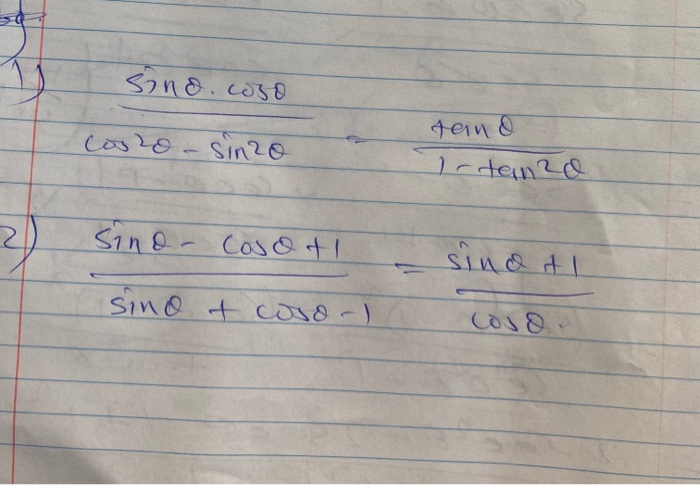 1) sinθ.cosθ / cos²θ - sin²θ = tanθ / 1-tan²θ
2) sinθ - cosθ+1 / sinθ + cosθ-1 = sinθ+1 / cosθ.